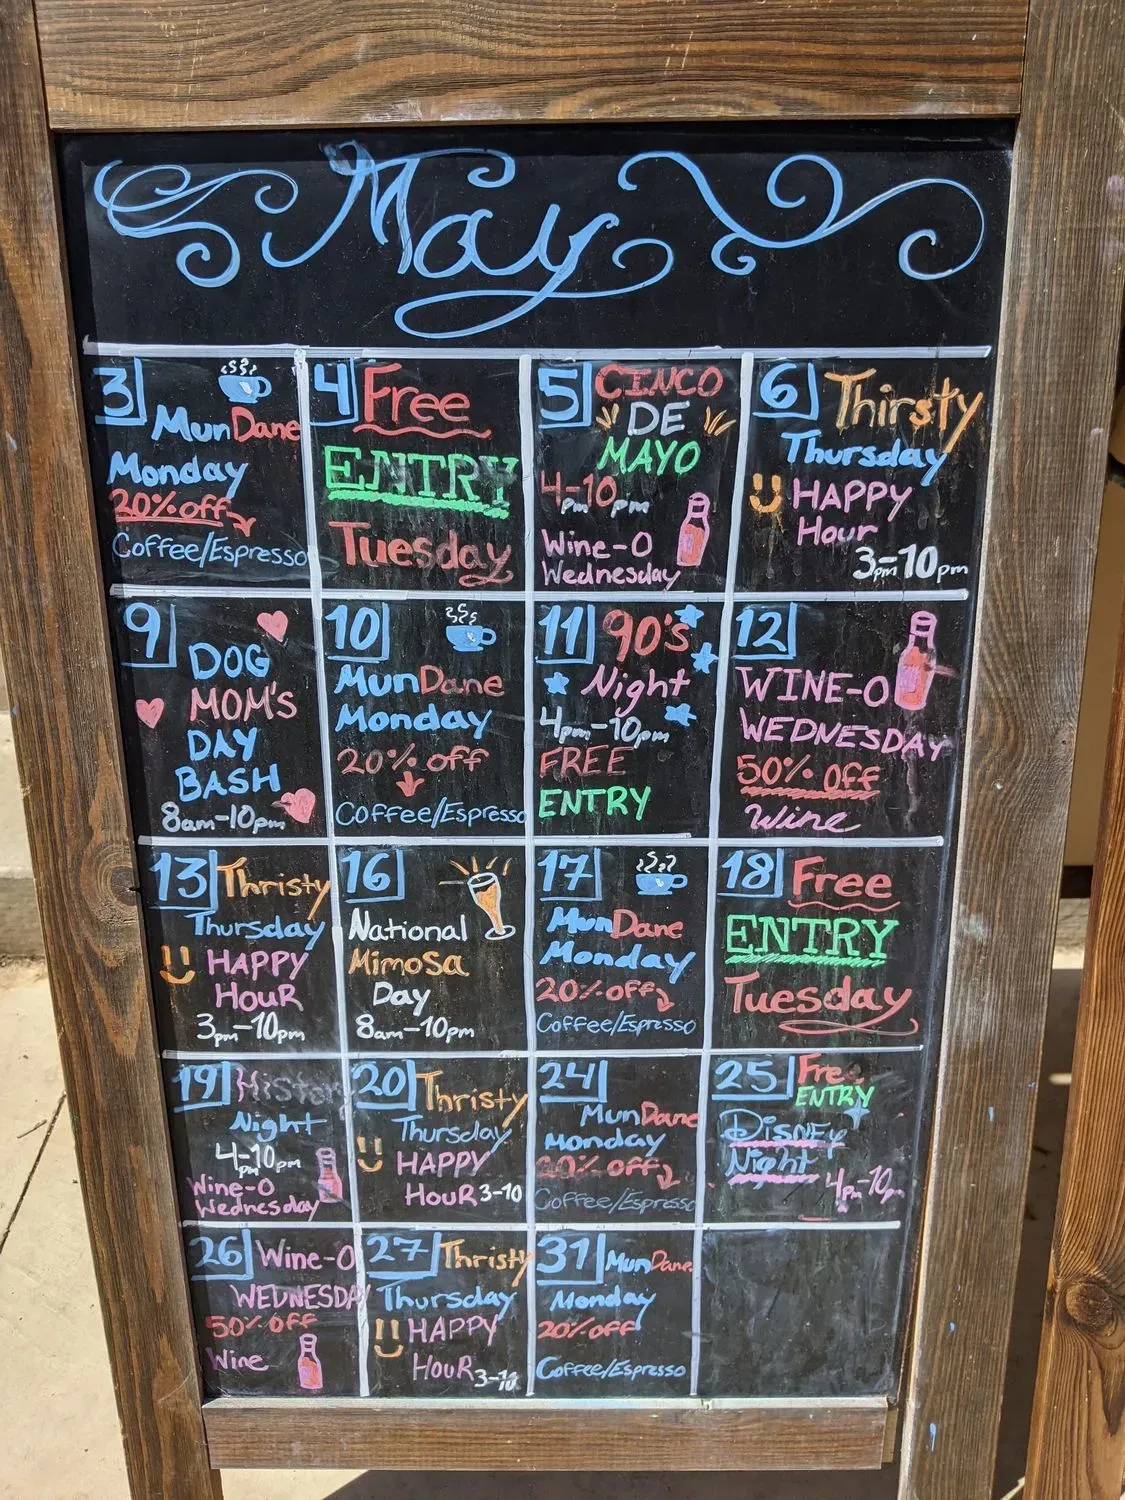 May
3
MunDane
Monday
20% off
Coffee/Espresso
4 Free
ENTRY
Tuesday
5 CINCO
DE
MAYO
4-10
pm pm
Wine-O
Wednesday
6 Thirsty
Thursday
HAPPY
Hour
3pm-10pm
9
DOG
MOM'S
DAY
BASH
8am-10pm
10
MunDane
Monday
20% off
Coffee/Espresso
11 90's
Night
4pm-10pm
FREE
ENTRY
12
WINE-O
WEDNESDAY
50% Off
Wine
13 Thristy
Thursday
HAPPY
HouR
3pm-10pm
16
National
MimoSa
Day
8am-10pm
17
MunDane
Monday
20% off
Coffee/Espresso
18 Free
ENTRY
Tuesday
19 History
Night
4-10pm
pm
Wine-O
Wednesday
20 Thristy
Thursday
HAPPY
HouR 3-10
24
MunDane
Monday
20% off
Coffee/Espresso
25 Free
ENTRY
DISNEY
Night
4pm-10pm
26 Wine-O
WEDNESDAY
50% OFF
Wine
27 Thristy
Thursday
HAPPY
HouR 3-10
31 MunDane
Monday
20% off
Coffee/Espresso